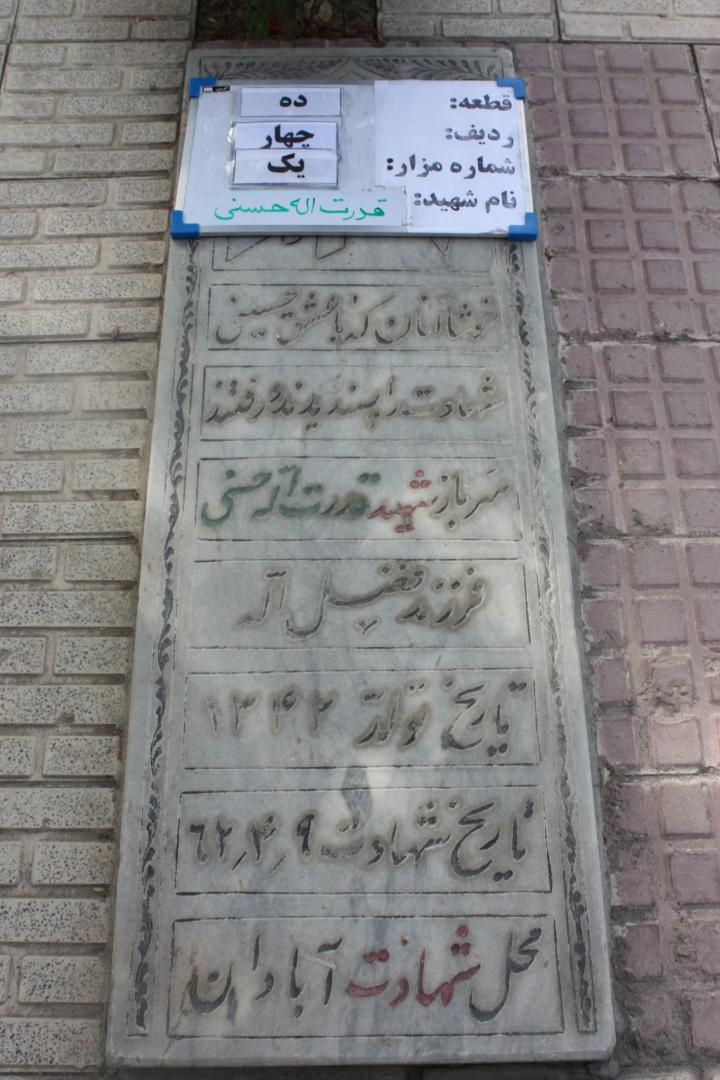 قطعه: ده
ردیف: چهار
شماره مزار: یک
نام شهید: قدرت اله حسنی
خوشا آنان که با عشق حسینی
شهادت را پسندیدند و رفتند
سرباز شهید قدرت اله حسنی
فرزند فضل اله
تاریخ تولد ۱۳۴۲
تاریخ شهادت ۹٫۴٫۶۲
محل شهادت آبادان